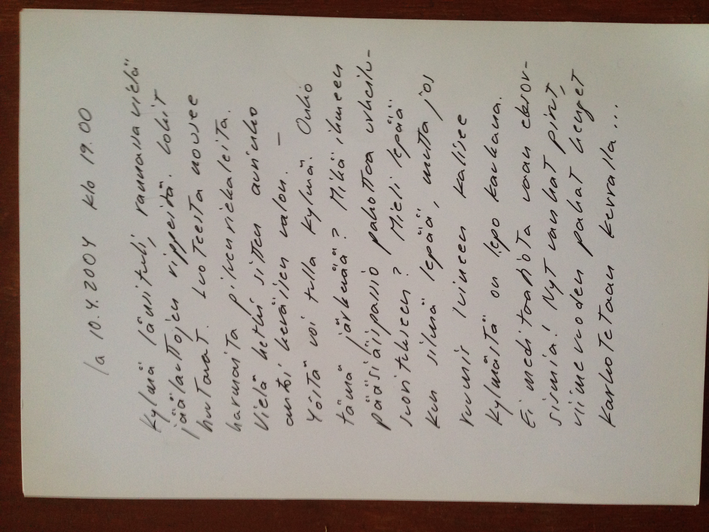 la 10.4.2004 klo 19.00
Kylmä länsituuli, rannassa vielä
jäälauttojen rippeitä. Lokit
huutavat. Luoteesta nousee
harmaita pilvenriekaleita.
Vielä hetki sitten aurinko
antoi keväisen valon. –
Yöstä voi tulla kylmä. Onko
tämä järkevää? Mikä ihmeen
pääsiäispassio pakottaa urheilu-
suoritukseen? Mieli lepää
kun silmä lepää, mutta jos
ruumis luineen kalisee
kylmästä on lepo kaukana.
Ei meditaatiota vaan eksor-
sismia! Nyt vanhat pirut,
viime vuoden pahat henget
karkotetaan kerralla...